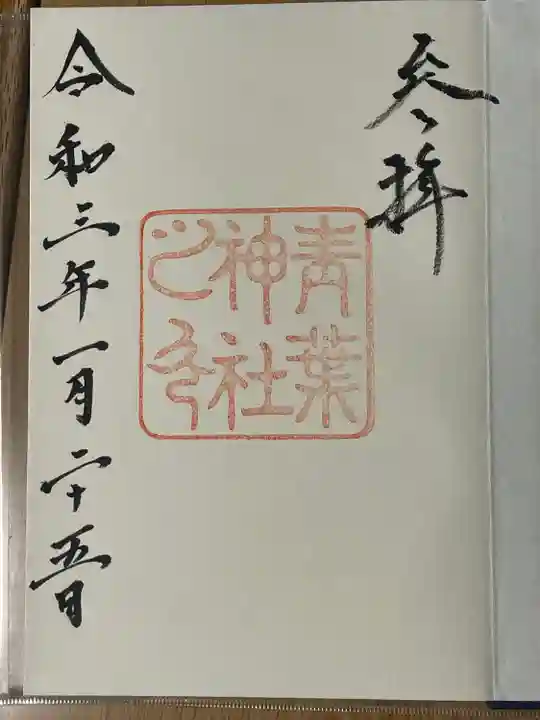 参拝
青葉
神社
之印
令和三年一月二十五日